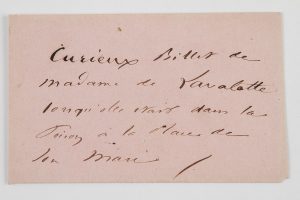 Curieux Billet de
madame de Lavalette
lorsqu'elle était dans la
Prison à la Place de
son Mari